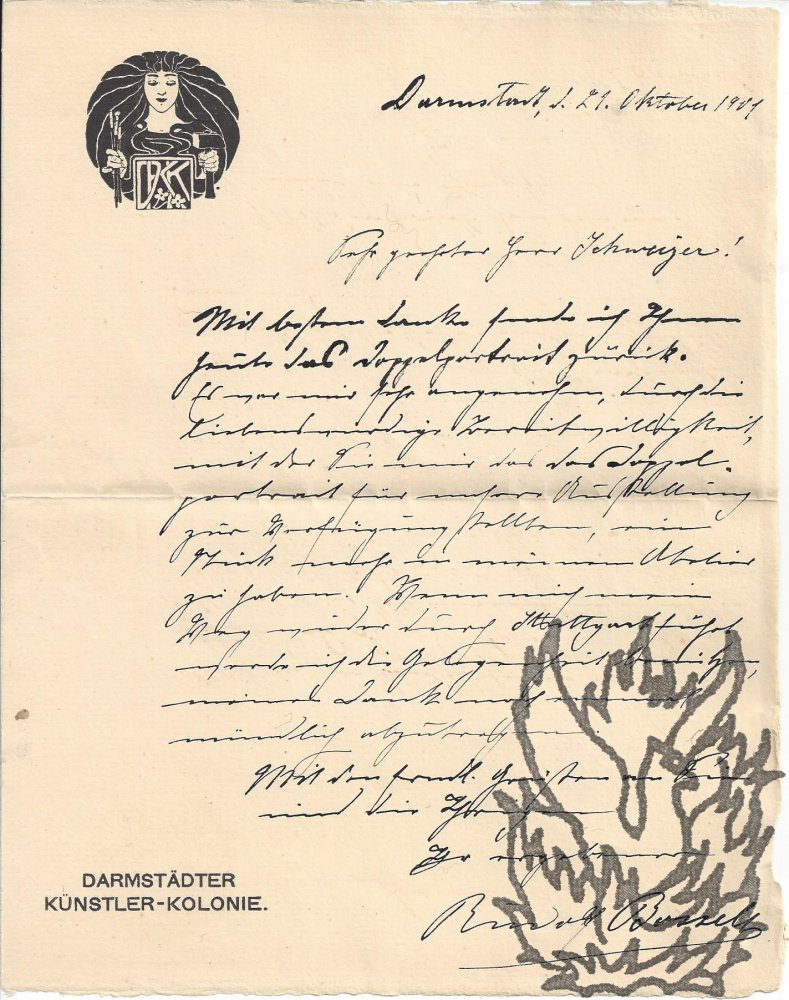 DKK
Darmstadt, d. 21. Oktober 1901
Sehr geehrter Herr Schweizer!
Mit bestem Danke sende ich Ihnen
heute das Doppelportrait zurück.
Es war mir sehr angenehm, durch die
liebenswürdige Bereitwilligkeit,
mit der Sie mir das das Doppel-
portrait für unsere Ausstellung
zur Verfügung stellten, ein
Stück mehr in meinem Atelier
zu haben. Wenn mich mein
Weg wieder durch Stuttgart führt
werde ich die Gelegenheit benützen,
meinen Dank noch einmal
mündlich abzutragen.
Mit den frndl. Grüßen an Sie
und die Ihrigen
Ihr ergebener
Rudolf Bosselt
DARMSTÄDTER
KÜNSTLER-KOLONIE.